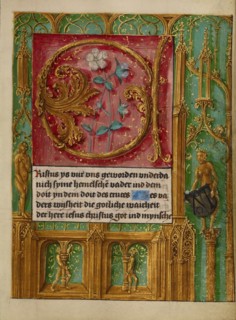 Ristus ys vur vns geworden vnderda
nich syme hemelsche vader ind dem
doit yn dem doit des cruces es va
ders wisheit die gotliche wairheit
der here iesus christus got ind mynsche